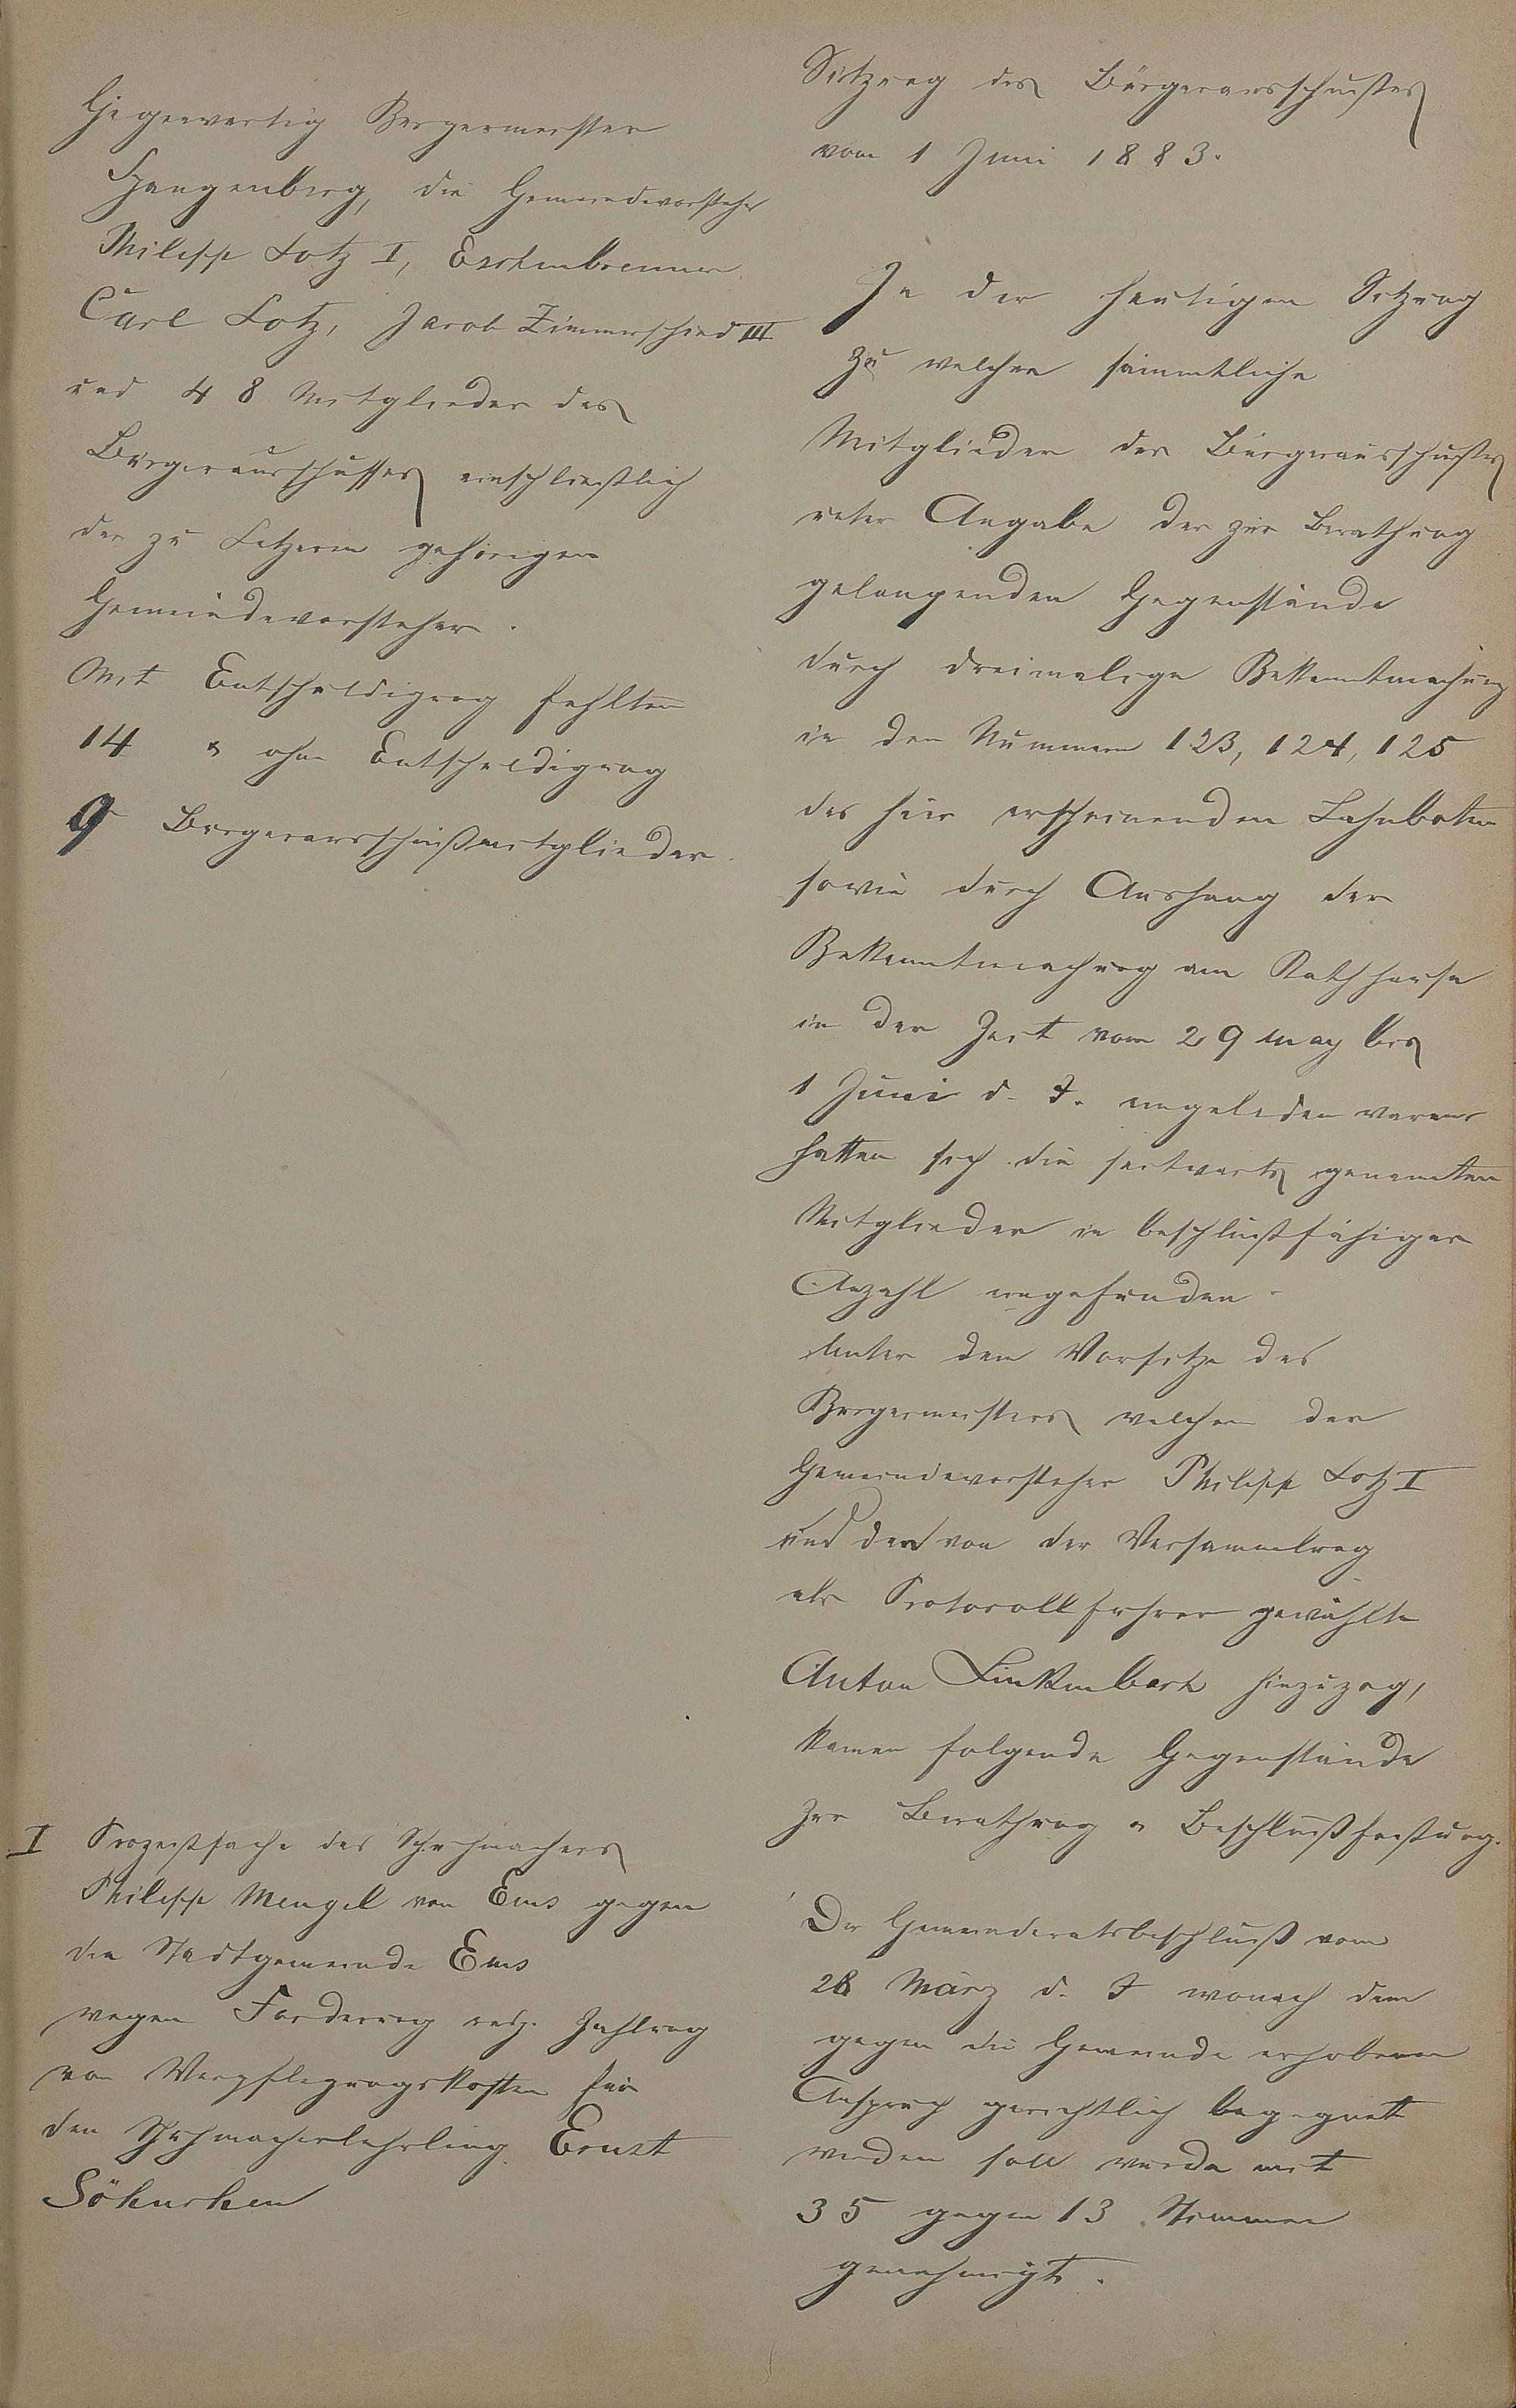 Gegenwärtig Bürgermeister
Spangenberg, die Gemeindevorsteher
Philipp Lotz I, Eschenbrenner
Carl Lotz, Jacob Zimmerschied III
und 48 Mitglieder des
Bürgerausschusses einschließlich
der zu Letzerem gehörigen
Gemeindevorsteher.
Mit Entschuldigung fehlten
14 u ohne Entschuldigung
9 Bürgerausschußmitglieder.
I Prozeßsache des Schuhmachers
Philipp Mengel von Ems gegen
die Stadtgemeinde Ems
wegen Forderung resp. Zahlung
von Verpflegungskosten für
den Schuhmacherlehrling Ernst
Söhnchen
Sitzung des Bürgerausschußes
vom 1 Juni 1883.
In der heutigen Sitzung
zu welcher sämmtliche
Mitglieder des Bürgerausschußes
unter Angabe der zur Berathung
gelangenden Gegenstände
durch dreimalige Bekanntmachung
in den Nummern 123, 124, 125
des hier erscheinenden Lahnboten
sowie durch Aushang der
Bekanntmachung am Rathhause
in der Zeit vom 29 May bis
1 Juni d. J. eingeladen waren
hatten sich die seitwärts genannten
Mitglieder in beschlußfähiger
Anzahl eingefunden.
Unter dem Vorsitze des
Bürgermeisters welchem der
Gemeindevorsteher Philipp Lotz I
und der von der Versammlung
als Protocollführer gewählte
Anton Linkenbach hinzuzog,
kamen folgende Gegenstände
zur Berathung u Beschlußfaßung.
Der Gemeinderatsbeschluß vom
28 März d. J wonach dem
gegen die Gemeinde erhobenen
Anspruch gerichtlich begegnet
werden soll wurde mit
35 gegen 13 Stimmen
genehmigt.